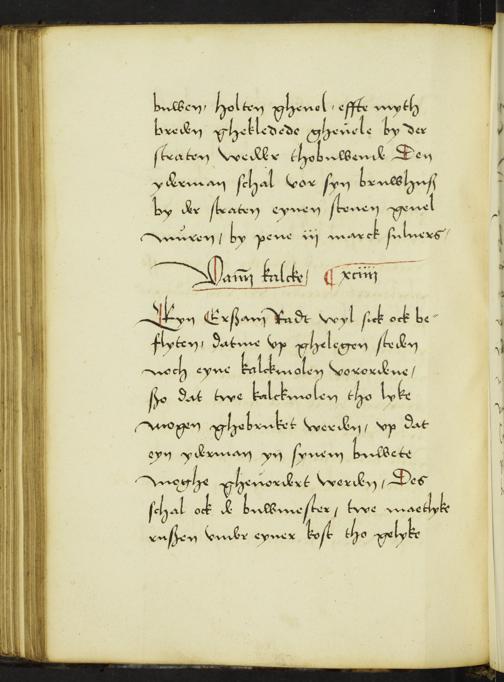 buwen, holten ghevel, effte myth
breden ghekledede ghevele by der
straten wedder thobuwende Den
yderman schal vor syn bruwhuß
by der straten eynen stenen gevel
muren, by pene iii marck sulvers,
Vam kalcke, xciiii
Eyn Erßam Radt wyl sick ock be-
flyten, datme vp ghelegen steden
noch eyne kalckmolen vorordene,
ßo dat twe kalckmolen tho lyke
mogen ghebruket werden, vp dat
eyn yderman yn synem buwete
moghe ghevordert werden, Des
schal ock de buwmester, twe maetlyke
rußen vnder eyner kost tho gelyke